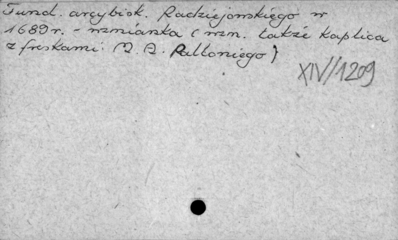 Fund. arcybisk. Radziejowskiego w
1689 r. - wzmianka (wzn. także kaplica
z freskami M. A. Palloniego)
XIV/1209